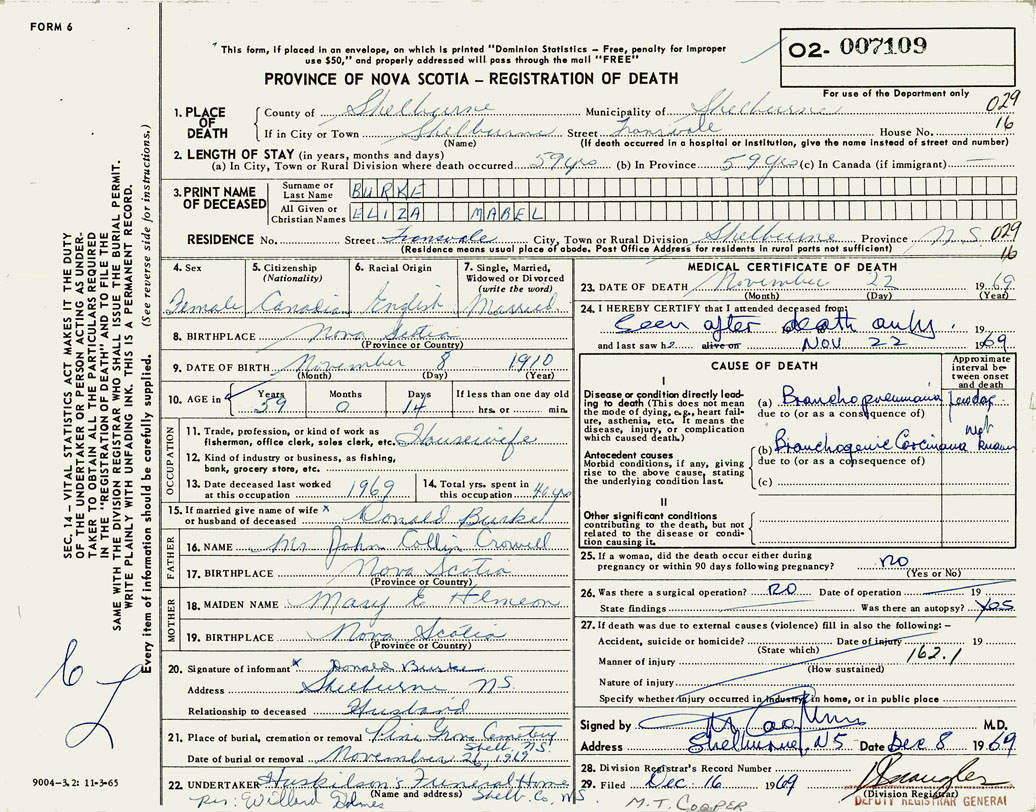 FORM 6
This form, if placed in an envelope, on which is printed "Dominion Statistics – Free, penalty for improper
use $50," and properly addressed will pass through the mail "FREE"
O2- 007109
PROVINCE OF NOVA SCOTIA – REGISTRATION OF DEATH
For use of the Department only
029
16
1. PLACE OF DEATH
County of Shelburne Municipality of Shelburne
If in City or Town Shelburne Street Transvale House No.
(Name) (If death occurred in a hospital or institution, give the name instead of street and number)
2. LENGTH OF STAY (in years, months and days)
(a) In City, Town or Rural Division where death occurred 59 yrs (b) In Province 59 yrs (c) In Canada (if immigrant) —
3. PRINT NAME OF DECEASED
Surname or Last Name BURKE
All Given or Christian Names ELIZA MABEL
RESIDENCE No. Street Transvale City, Town or Rural Division Shelburne Province N.S. 029
(Residence means usual place of abode. Post Office Address for residents in rural parts not sufficient)
16
4. Sex
Female
5. Citizenship
(Nationality)
Canadian
6. Racial Origin
English
7. Single, Married,
Widowed or Divorced
(write the word)
Married
8. BIRTHPLACE Nova Scotia
(Province or Country)
9. DATE OF BIRTH November 8 1910
(Month) (Day) (Year)
10. AGE in Years Months Days If less than one day old
59 0 14 hrs. or min.
OCCUPATION
11. Trade, profession, or kind of work as
fisherman, office clerk, sales clerk, etc. Housewife
12. Kind of industry or business, as fishing,
bank, grocery store, etc.
13. Date deceased last worked
at this occupation 1969
14. Total yrs. spent in
this occupation 40 yrs
15. If married give name of wife x
or husband of deceased Donald Burke
FATHER
16. NAME Mr John Collin Crowell
17. BIRTHPLACE Nova Scotia
(Province or Country)
MOTHER
18. MAIDEN NAME Mary E
19. BIRTHPLACE Nova Scotia
(Province or Country)
20. Signature of informant x Donald Burke
Address Shelburne NS.
Relationship to deceased Husband
21. Place of burial, cremation or removal Pine Grove Cemetery
Shelb. NS.
Date of burial or removal November 26, 1969
22. UNDERTAKER Huskilson's Funeral Home
(Name and address) Shelb. Co. NS
per: Willard
MEDICAL CERTIFICATE OF DEATH
23. DATE OF DEATH November 22 1969
(Month) (Day) (Year)
24. I HEREBY CERTIFY that I attended deceased from
Seen after death only. 19
and last saw her alive on NOV 22 1969
CAUSE OF DEATH
Approximate interval between onset and death
I
Disease or condition directly leading to death (This does not mean the mode of dying, e.g., heart failure, asthenia, etc. It means the disease, injury, or complication which caused death.)
(a) Bronchopneumonia
due to (or as a consequence of)
Antecedent causes
Morbid conditions, if any, giving rise to the above cause, stating the underlying condition last.
(b) Bronchogenic Carcinoma not known
due to (or as a consequence of)
(c)
II
Other significant conditions
contributing to the death, but not related to the disease or condition causing it.
25. If a woman, did the death occur either during
pregnancy or within 90 days following pregnancy? NO
(Yes or No)
26. Was there a surgical operation? NO Date of operation 19
State findings Was there an autopsy? Yes
27. If death was due to external causes (violence) fill in also the following: –
Accident, suicide or homicide? Date of injury 19
(State which)
162.1
Manner of injury
(How sustained)
Nature of injury
Specify whether injury occurred in industry, in home, or in public place
Signed by M.D.
Address Shelburne, NS Date Dec 8 1969
28. Division Registrar's Record Number
29. Filed Dec 16 1969
(Division Registrar)
DEPUTY REGISTRAR GENERAL
M.T. COOPER
SEC. 14 – VITAL STATISTICS ACT MAKES IT THE DUTY
OF THE UNDERTAKER OR PERSON ACTING AS UNDER-
TAKER TO OBTAIN ALL THE PARTICULARS REQUIRED
IN THE "REGISTRATION OF DEATH" AND TO FILE THE
SAME WITH THE DIVISION REGISTRAR WHO SHALL ISSUE THE BURIAL PERMIT.
WRITE PLAINLY WITH UNFADING INK. THIS IS A PERMANENT RECORD.
Every item of information should be carefully supplied. (See reverse side for instructions.)
9004–3.2: 11-3-65